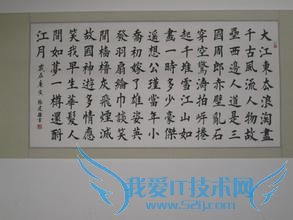 大江東去浪淘盡
千古風流人物故
壘西邊人道是三
國周郎赤壁亂石
穿空驚濤拍岸捲
起千堆雪江山如
畫一時多少豪傑
遙想公瑾當年小
喬初嫁了雄姿英
發羽扇綸巾談笑
間檣櫓灰飛煙滅
故國神遊多情應
笑我早生華髮人
間如夢一樽還酹
江月
我爱IT技术网